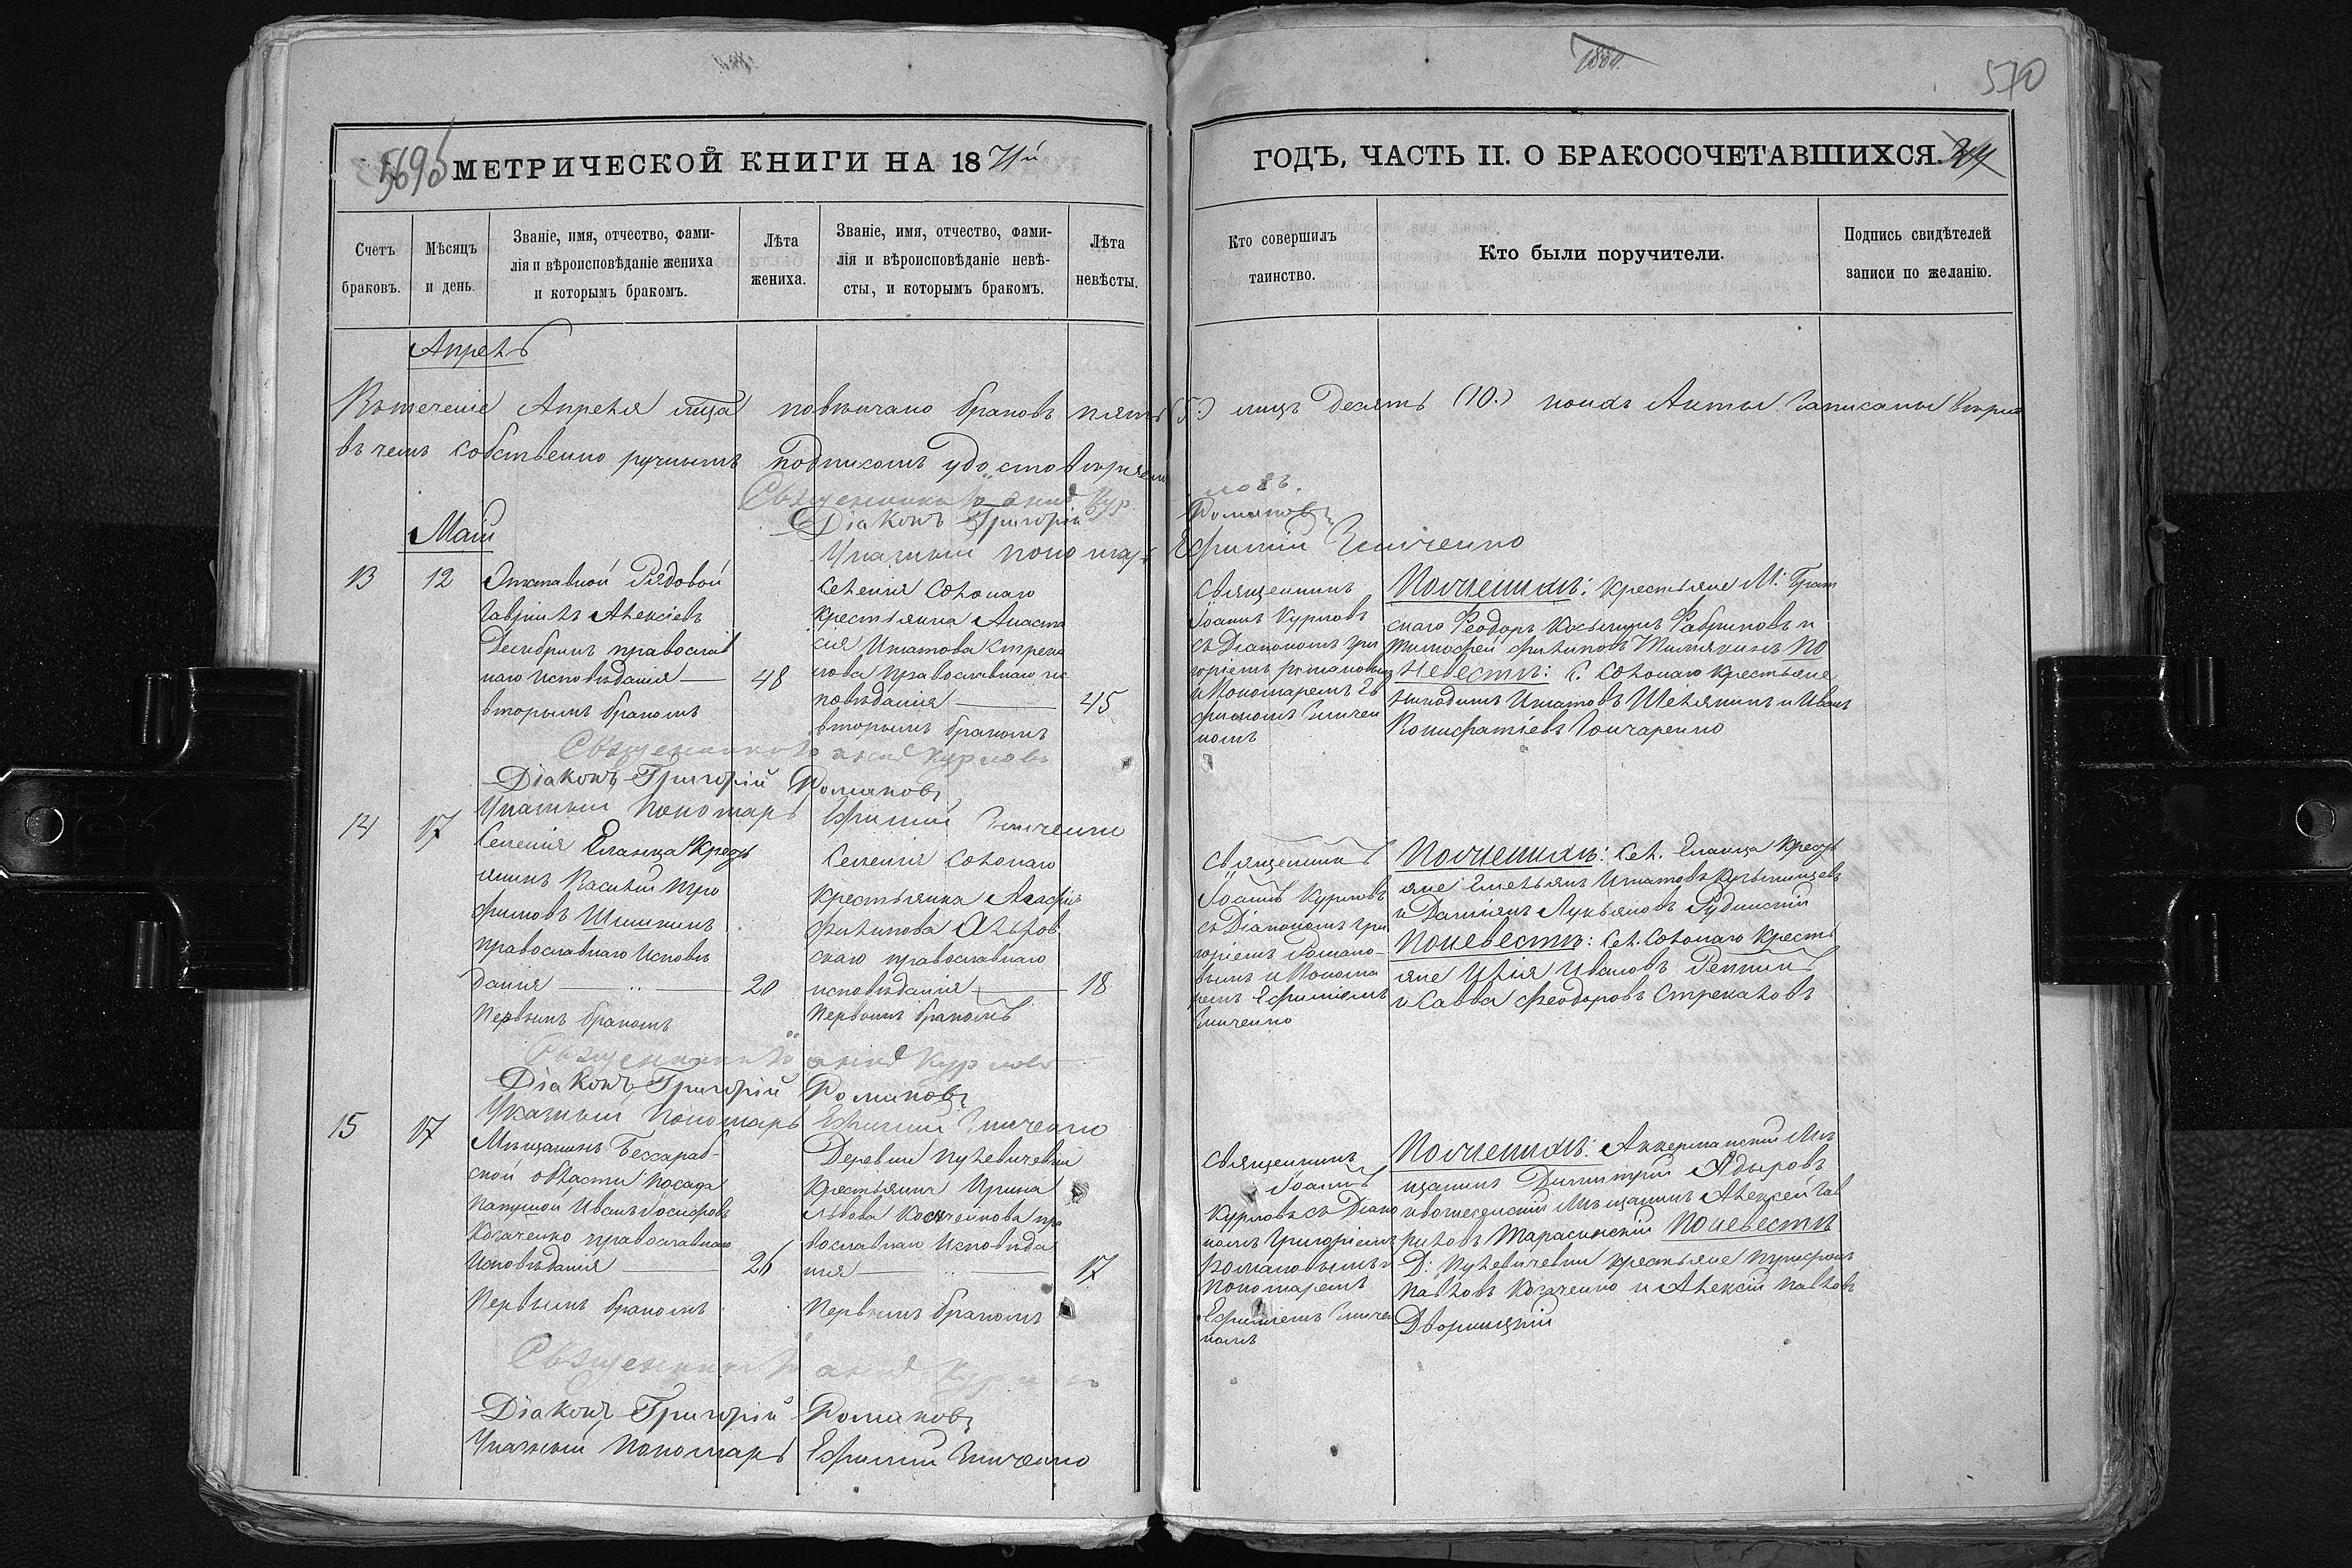 1884.
570
569об
МЕТРИЧЕСКОЙ КНИГИ НА 18 71й
ГОДЪ, ЧАСТЬ II. О БРАКОСОЧЕТАВШИХСЯ.
Счетъ браковъ.
Мѣсяцъ и день.
Званіе, имя, отчество, фами-
лія и вѣроисповѣданіе жениха
и которымъ бракомъ.
Лѣта
жениха.
Званіе, имя, отчество, фами-
лія и вѣроисповѣданіе невѣ-
сты, и которымъ бракомъ.
Лѣта
невѣсты.
Кто совершилъ
таинство.
Кто были поручители.
Подпись свидѣтелей
записи по желанію.
Апрель
Втеченіе Апреля мца повенчано браковъ пять (5.) лицъ десять (10.) акты записаны
въ чемъ собственно ручнымъ подписомъ удостоверяемъ
Священникъ Іоаннъ Курловъ.
Діаконъ Григорій Романовъ
Указный пономарь Ефимій Зинченко
Маій
13
12
Отставной Рядовой
Гавріилъ Алексіевъ
православ
наго исповѣданія
вторымъ бракомъ
48
Селенія Солонаго
крестьянка Анаста
сія Игнатова Стрека
лова православнаго ис
повѣданія
вторымъ бракомъ
45
Священникъ
Іоаннъ Курловъ
съ Діакономъ Гри
горіемъ Романовымъ
и Пономаремъ Ев
фиміемъ Зинчен
комъ
По женихѣ: крестьяне М:
скаго Феодоръ
Тимофей Филиповъ По
невестѣ: С. Солонаго крестьяне
Никодимъ Игнатовъ и Иванъ
Вонифатіевъ Гончаренко
Священникъ Іоаннъ Курловъ
Діаконъ Григорій Романовъ
Указный Пономарь Ефимій Зинченко
14
17
Селенія Еланца Кресть
янинъ Василій Тро
фимовъ Шишкинъ
православнаго исповѣ
данія
Первымъ бракомъ
20
Селенія Солонаго
крестьянка Агафія
Филипова
скаго православнаго
исповѣданія
Первымъ бракомъ
18
Священникъ
Іоаннъ Курловъ
съ Діакономъ Гри
горіемъ Романо-
вымъ и Понома
ремъ Ефиміемъ
Зинченко
По женихѣ: Сел. Еланца Кресть
яне Емельянъ Игнатовъ
и Даміянъ Лукьяновъ Рудинскій
По невестѣ: Сел. Солонаго Кресть
яне Илія Ивановъ Репкинъ
и Савва Феодоровъ Стрекаловъ
Священникъ Іоаннъ Курловъ
Діаконъ Григорій Романовъ
Указный Пономарь Ефимій Зинченко
15
17
Мѣщанинъ Бессараб-
ской области посада
Папушой Иванъ Іосифовъ
Козаченко православнаго
исповѣданія
Первымъ бракомъ
26
Деревни Пулевичевки
крестьянка Ирина
Львова пра
вославнаго исповѣда
нія
Первымъ бракомъ
17
Священникъ
Іоаннъ
Курловъ съ Діако
номъ Григоріемъ
Романовымъ и
Пономаремъ
Ефиміемъ Зинчен
комъ
По женихѣ: Аккерманскій Мѣ
щанинъ Димитрій
Мѣщанинъ Алексей Гав
риловъ Тарасинскій По невестѣ
Д: Пулевичевки крестьяне Трифонъ
Павловъ Козаченко и Алексій Павловъ
Дворницкій
Священникъ Іоаннъ Курловъ
Діаконъ Григорій Романовъ
Указный Пономарь Ефимій Зинченко